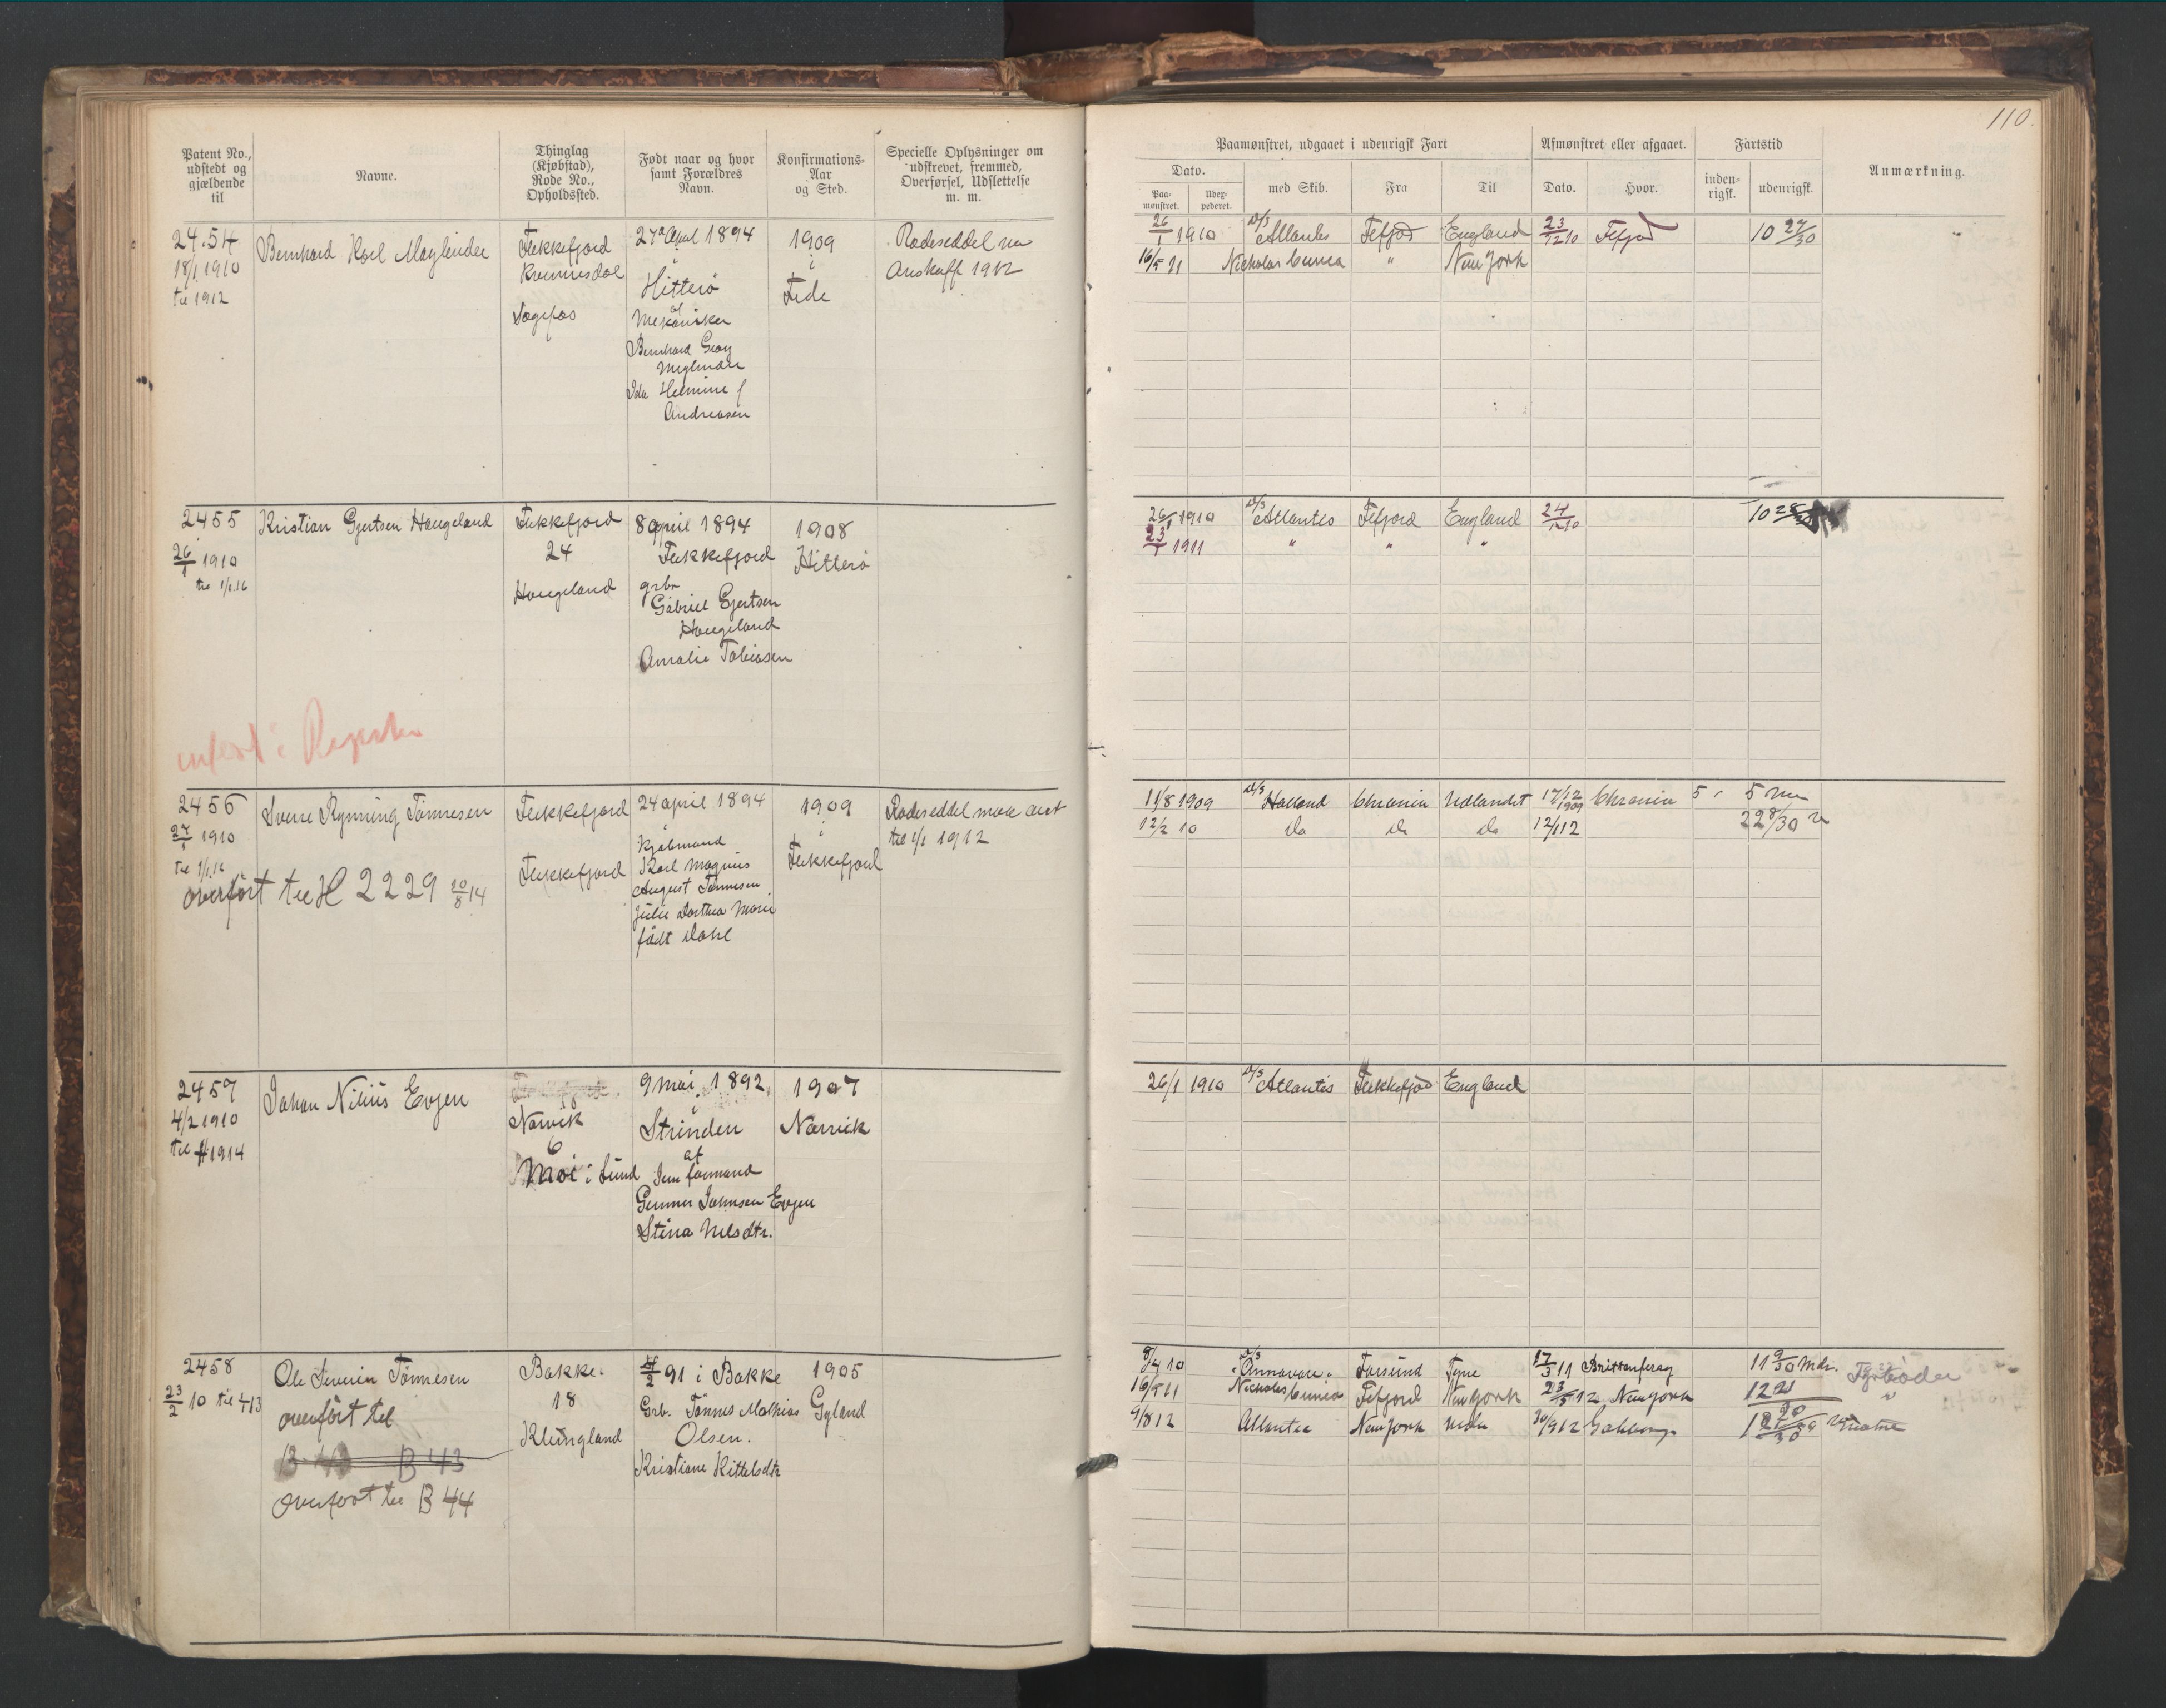 110.
Patent No., udstedt og gjældende til
Navne.
Thinglag (Kjøbstad), Rode No., Opholdssted.
Født naar og hvor samt Forældres Navn.
Konfirmations-Aar og Sted.
Specielle Oplysninger om udskrevet, fremmed, Overførsel, Udslettelse m. m.
Paamønstret, udgaaet i udenrigsk Fart
Afmønstret eller afgaaet.
Fartstid
Anmærkning.
Dato.
Paamønstret.
Udexpederet.
med Skib.
Fra
Til
Dato.
Hvor.
indenrigsk.
udenrigsk.
2454
18/1 1910
til 1912
Bernhard Karl
Flekkefjord
Kvinnesdal
27 April 1894
i
Hitterø
af
Mekaniker
Bernhard Georg
Ida Helmine f
Andreasen
1909
i
Fede
Rodeseddel
1912
26/1 1910 D/S Atlantis Fefjord England 23/12 10 Fefjord 10 27/30
16/5 11 Nicholas Cuneo " New York
2455
26/1 1910
til 1/1.16
Kristian Gjertsen Haugeland
Flekkefjord
24
Haugeland
8 april 1894
Flekkefjord
grbr
Gabriel Gjertsen
Haugeland
Amalie Tobiasen
1908
Hitterø
26/1 1910 D/S Atlantis Fefjord England 24/12 10 10 28
23/1 1911 " " "
i Register
2456
27/1 1910
til 1/1.16
Sverre Rynning Tønnesen
overført til H 2229 20/8 14
Flekkefjord
Flekkefjord
24 april 1894
i
Kjøbmand
Karl Magnus
August Tønnesen
Julie Dorthea Marie
født Dahl
1909
i
Flekkefjord
Rodeseddel
til 1/1 1912
11/8 1909 D/S Haaland Chrania Udlandet 17/12 1909 Chrania 5 5
12/2 10 Do Do Do 12/1 12 22 8/30
2457
4/2 1910
til 1914
Johan Nilius Evjen
Narvik
6
Moi i Lund
9 mai 1892
i
Strinden
af
formand
Gunner Johnsen Evjen
Stina Nilsdtr.
1907
Narvik
26/1 1910 D/S Atlantis Flekkefjord England
2458
23/2 10 til 413
Ole Severin Tønnesen
overført til
B 43
overført til B 44
Bakke.
18
Klungland
91 i Bakke
Grb. Tønnes Mathias
Olsen.
Kristiane Kittelsdtr
1905
Gyland
8/4 10 D/S Farsund Tyne 17/3 11 11 9/30 Mdr. Fyrbøder
16/5 11 Nicholas Cuneo Fefjord New York 23/5 12 New York 12
9/8 12 Atlantis New York 30/9 12